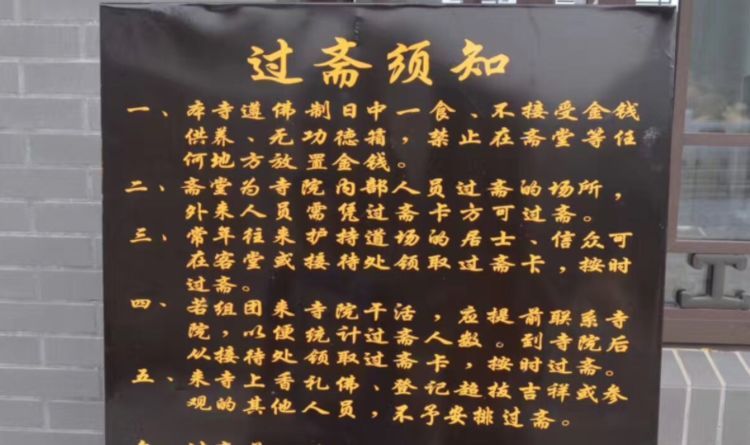 过斋须知
一、本寺遵佛制日中一食、不接受金钱
供养、无功德箱，禁止在斋堂等任
何地方放置金钱。
二、斋堂为寺院内部人员过斋的场所，
外来人员需凭过斋卡方可过斋。
三、常年往来护持道场的居士、信众可
在客堂或接待处领取过斋卡，按时
过斋。
四、若组团来寺院干活，应提前联系寺
院，以便统计过斋人数。到寺院后
从接待处领取过斋卡，按时过斋。
五、来寺上香礼佛、登记超拔吉祥或参
观的其他人员，不予安排过斋。